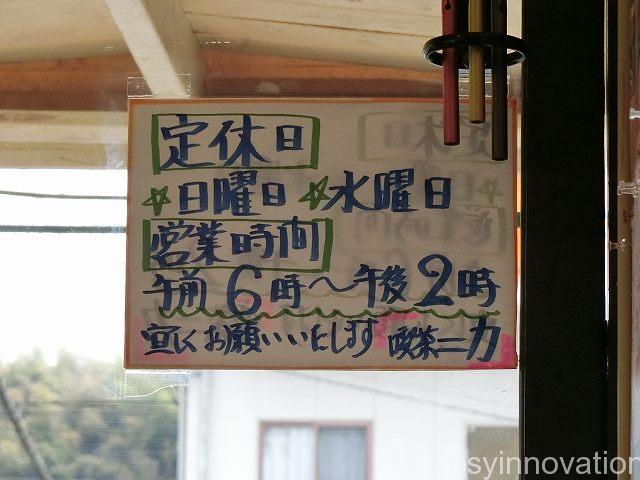 定休日
☆日曜日 ☆水曜日
営業時間
午前6時〜午後2時
宜しくお願いいたします 喫茶ニカ
syinnovation